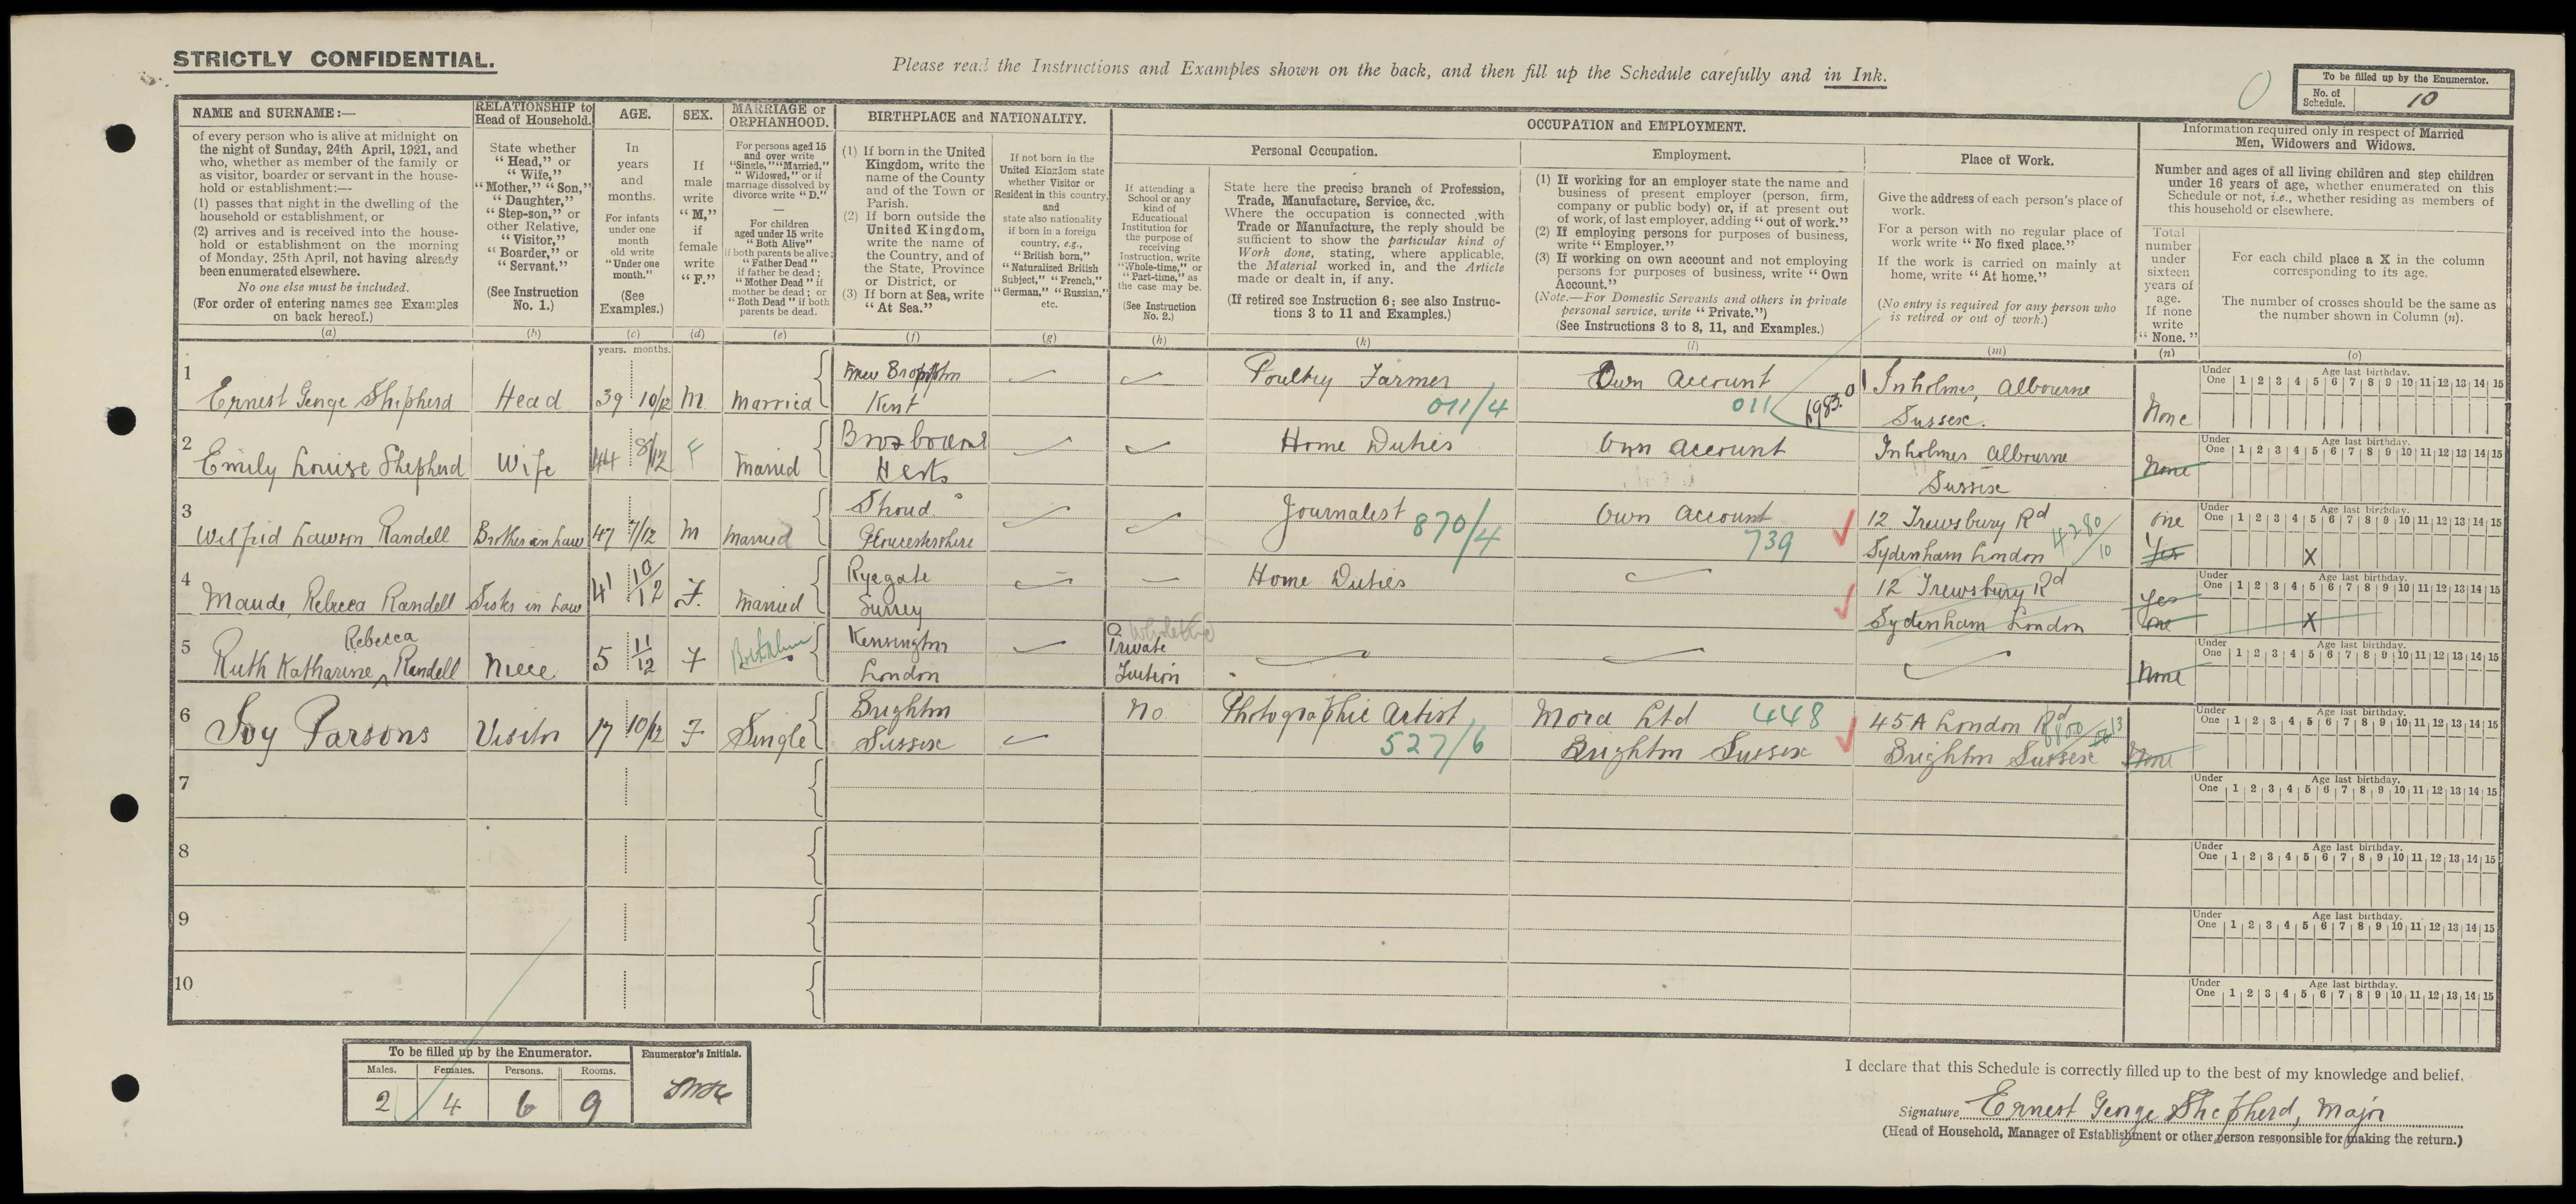 STRICTLY CONFIDENTIAL.
Please read the Instructions and Examples shown on the back, and then fill up the Schedule carefully and in Ink.
To be filled up by the Enumerator.
No. of Schedule. 10
NAME and SURNAME:—
of every person who is alive at midnight on
the night of Sunday, 24th April, 1921, and
who, whether as member of the family or
as visitor, boarder or servant in the house-
hold or establishment:—
(1) passes that night in the dwelling of the
household or establishment, or
(2) arrives and is received into the house-
hold or establishment on the morning
of Monday, 25th April, not having already
been enumerated elsewhere.
No one else must be included.
(For order of entering names see Examples
on back hereof.)
(a)
RELATIONSHIP to
Head of Household.
State whether
"Head," or
"Wife,"
"Mother," "Son,"
"Daughter,"
"Step-son," or
other Relative,
"Visitor,"
"Boarder," or
"Servant."
(See Instruction
No. 1.)
(b)
AGE.
In
years
and
months.
For infants
under one
month
old write
"Under one
month."
(See
Examples.)
(c)
SEX.
If
male
write
"M,"
if
female
write
"F."
(d)
MARRIAGE or
ORPHANHOOD.
For persons aged 15
and over write
"Single," "Married,"
"Widowed," or if
marriage dissolved by
divorce write "D."
—
For children
aged under 15 write
"Both Alive"
if both parents be alive;
"Father Dead"
if father be dead;
"Mother Dead" if
mother be dead; or
"Both Dead" if both
parents be dead.
(e)
BIRTHPLACE and NATIONALITY.
(1) If born in the United
Kingdom, write the
name of the County
and of the Town or
Parish.
(2) If born outside the
United Kingdom,
write the name of
the Country, and of
the State, Province
or District, or
(3) If born at Sea, write
"At Sea."
(f)
If not born in the
United Kingdom state
whether Visitor or
Resident in this country,
and
state also nationality
if born in a foreign
country, e.g.,
"British born,"
"Naturalised British
Subject," "French,"
"German," "Russian,"
etc.
(g)
OCCUPATION and EMPLOYMENT.
Personal Occupation.
If attending a
School or any
kind of
Educational
Institution for
the purpose of
receiving
Instruction, write
"Whole-time," or
"Part-time," as
the case may be.
(See Instruction
No. 2.)
(h)
State here the precise branch of Profession,
Trade, Manufacture, Service, &c.
Where the occupation is connected with
Trade or Manufacture, the reply should be
sufficient to show the particular kind of
Work done, stating, where applicable,
the Material worked in, and the Article
made or dealt in, if any.
(If retired see Instruction 6; see also Instruc-
tions 3 to 11 and Examples.)
(k)
Employment.
(1) If working for an employer state the name and
business of present employer (person, firm,
company or public body) or, if at present out
of work, of last employer, adding "out of work."
(2) If employing persons for purposes of business,
write "Employer."
(3) If working on own account and not employing
persons for purposes of business, write "Own
Account."
(Note.—For Domestic Servants and others in private
personal service, write "Private.")
(See Instructions 3 to 8, 11, and Examples.)
(l)
Place of Work.
Give the address of each person's place of
work.
For a person with no regular place of
work write "No fixed place."
If the work is carried on mainly at
home, write "At home."
(No entry is required for any person who
is retired or out of work.)
(m)
Information required only in respect of Married
Men, Widowers and Widows.
Number and ages of all living children and step children
under 16 years of age, whether enumerated on this
Schedule or not, i.e., whether residing as members of
this household or elsewhere.
Total
number
under
sixteen
years of
age.
If none
write
"None."
(n)
For each child place a X in the column
corresponding to its age.
The number of crosses should be the same as
the number shown in Column (n).
(o)
years. months.
Under One Age last birthday. 1 2 3 4 5 6 7 8 9 10 11 12 13 14 15
1 Ernest Genge Shepherd Head 39 10/12 M. Married New Brompton Kent Poultry Farmer 011/4 Own Account 011 Inholmes, Albourne Sussex. None
Under One Age last birthday. 1 2 3 4 5 6 7 8 9 10 11 12 13 14 15
2 Emily Louise Shepherd Wife 44 8/12 F Married Broxbourne Herts Home Duties Own account Inholmes Albourne Sussex None
Under One Age last birthday. 1 2 3 4 5 6 7 8 9 10 11 12 13 14 15
3 Wilfrid Lawson Randell Brother in Law 47 7/12 M Married Stroud Gloucestershire Journalist 870/4 Own account 739 12 Trewsbury Rd Sydenham London 4280/10 one Yes X
Under One Age last birthday. 1 2 3 4 5 6 7 8 9 10 11 12 13 14 15
4 Maude, Rebecca Randell Sister in Law 41 10/12 F. Married Ryegate Surrey Home Duties 12 Trewsbury Rd Sydenham London Yes one X
Under One Age last birthday. 1 2 3 4 5 6 7 8 9 10 11 12 13 14 15
5 Ruth Katharine Rebecca Randell Niece 5 11/12 F Both Alive Kensington London Wholetime Private Tuition None
Under One Age last birthday. 1 2 3 4 5 6 7 8 9 10 11 12 13 14 15
6 Joy Parsons Visitor 17 10/12 F Single Brighton Sussex No Photographic Artist 527/6 Mora Ltd 448 Brighton Sussex 45A London Rd Brighton Sussex None
Under One Age last birthday. 1 2 3 4 5 6 7 8 9 10 11 12 13 14 15
7
Under One Age last birthday. 1 2 3 4 5 6 7 8 9 10 11 12 13 14 15
8
Under One Age last birthday. 1 2 3 4 5 6 7 8 9 10 11 12 13 14 15
9
Under One Age last birthday. 1 2 3 4 5 6 7 8 9 10 11 12 13 14 15
10
Under One Age last birthday. 1 2 3 4 5 6 7 8 9 10 11 12 13 14 15
To be filled up by the Enumerator.
Enumerator's Initials.
Males. Females. Persons. Rooms.
2 4 6 9
I declare that this Schedule is correctly filled up to the best of my knowledge and belief.
Signature Ernest Genge Shepherd, Major
(Head of Household, Manager of Establishment or other person responsible for making the return.)